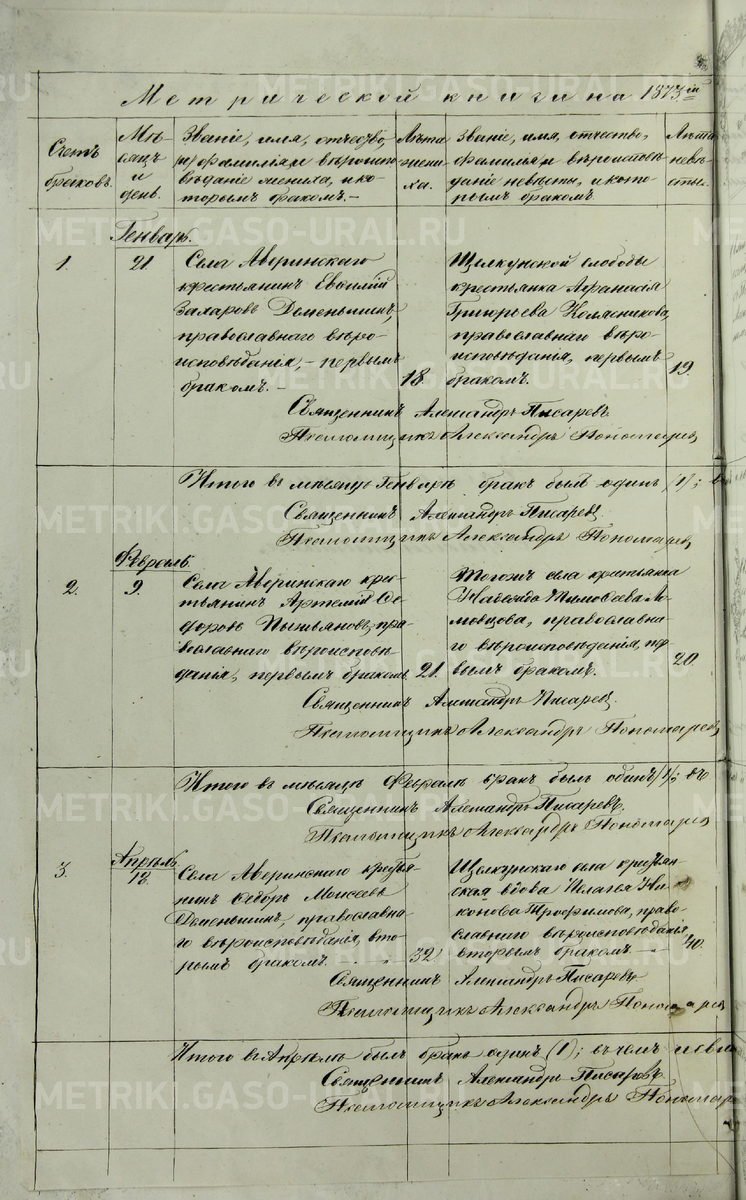 Метрической книги на 1873й
Счетъ браковъ.
Мѣсяцъ и день.
Званіе, имя, отчество, и фамилія и вѣроисповѣданіе жениха, и которымъ бракомъ.-
Лѣта жениха.
Званіе, имя, отчество, фамилія и вѣроисповѣданіе невѣсты, и которымъ бракомъ.
Лѣта невѣсты.
Генварь.
1.
21.
Села Аверинскаго
крестьянинъ
Захаровъ Деменьшинъ,
православнаго вѣро-
исповѣданія, - первымъ
бракомъ. -
18.
Щелкунской слободы
крестьянка Афанасія
Григорьева Колясникова,
православнаго вѣро-
исповѣданія, первымъ
бракомъ.
19.
Священникъ Александръ Писаревъ
Псаломщикъ Александръ Пономарев
Итого въ мѣсяцѣ Генварѣ бракъ былъ одинъ (1);
Священникъ Александръ Писаревъ
Псаломщикъ Александръ Пономарев
Февраль
2.
9.
Села Аверинскаго крес-
тьянинъ Артемій Ѳе-
доровъ пра-
вославнаго вѣроисповѣ-
данія, первымъ бракомъ.
21.
Тогожъ села крестьянка
православна-
го вѣроисповѣданія, пер-
вымъ бракомъ.
20.
Священникъ Александръ Писаревъ.
Псаломщикъ Александръ Пономарев
Итого въ мѣсяцѣ Февралѣ бракъ былъ одинъ (1);
Священникъ Александръ Писаревъ.
Псаломщикъ Александръ Пономарев
Апрѣль
3.
Села Аверинскаго крестья-
нинъ Ѳедоръ Моисеевъ
Деменьшинъ, православна-
го вѣроисповѣданія, вто-
рымъ бракомъ.
32
Щелкунскаго села крестьян-
ская вдова Пелагея Ни-
конова Трофимова, право-
славнаго вѣроисповѣданія,
вторымъ бракомъ
40.
Священникъ Александръ Писаревъ
Псаломщикъ Александръ Пономарев
Итого въ Апрѣлѣ былъ бракъ одинъ (1); въ чемъ
Священникъ Александръ Писаревъ
Псаломщикъ Александръ Пономар
METRIKI.GASO-URAL.RU